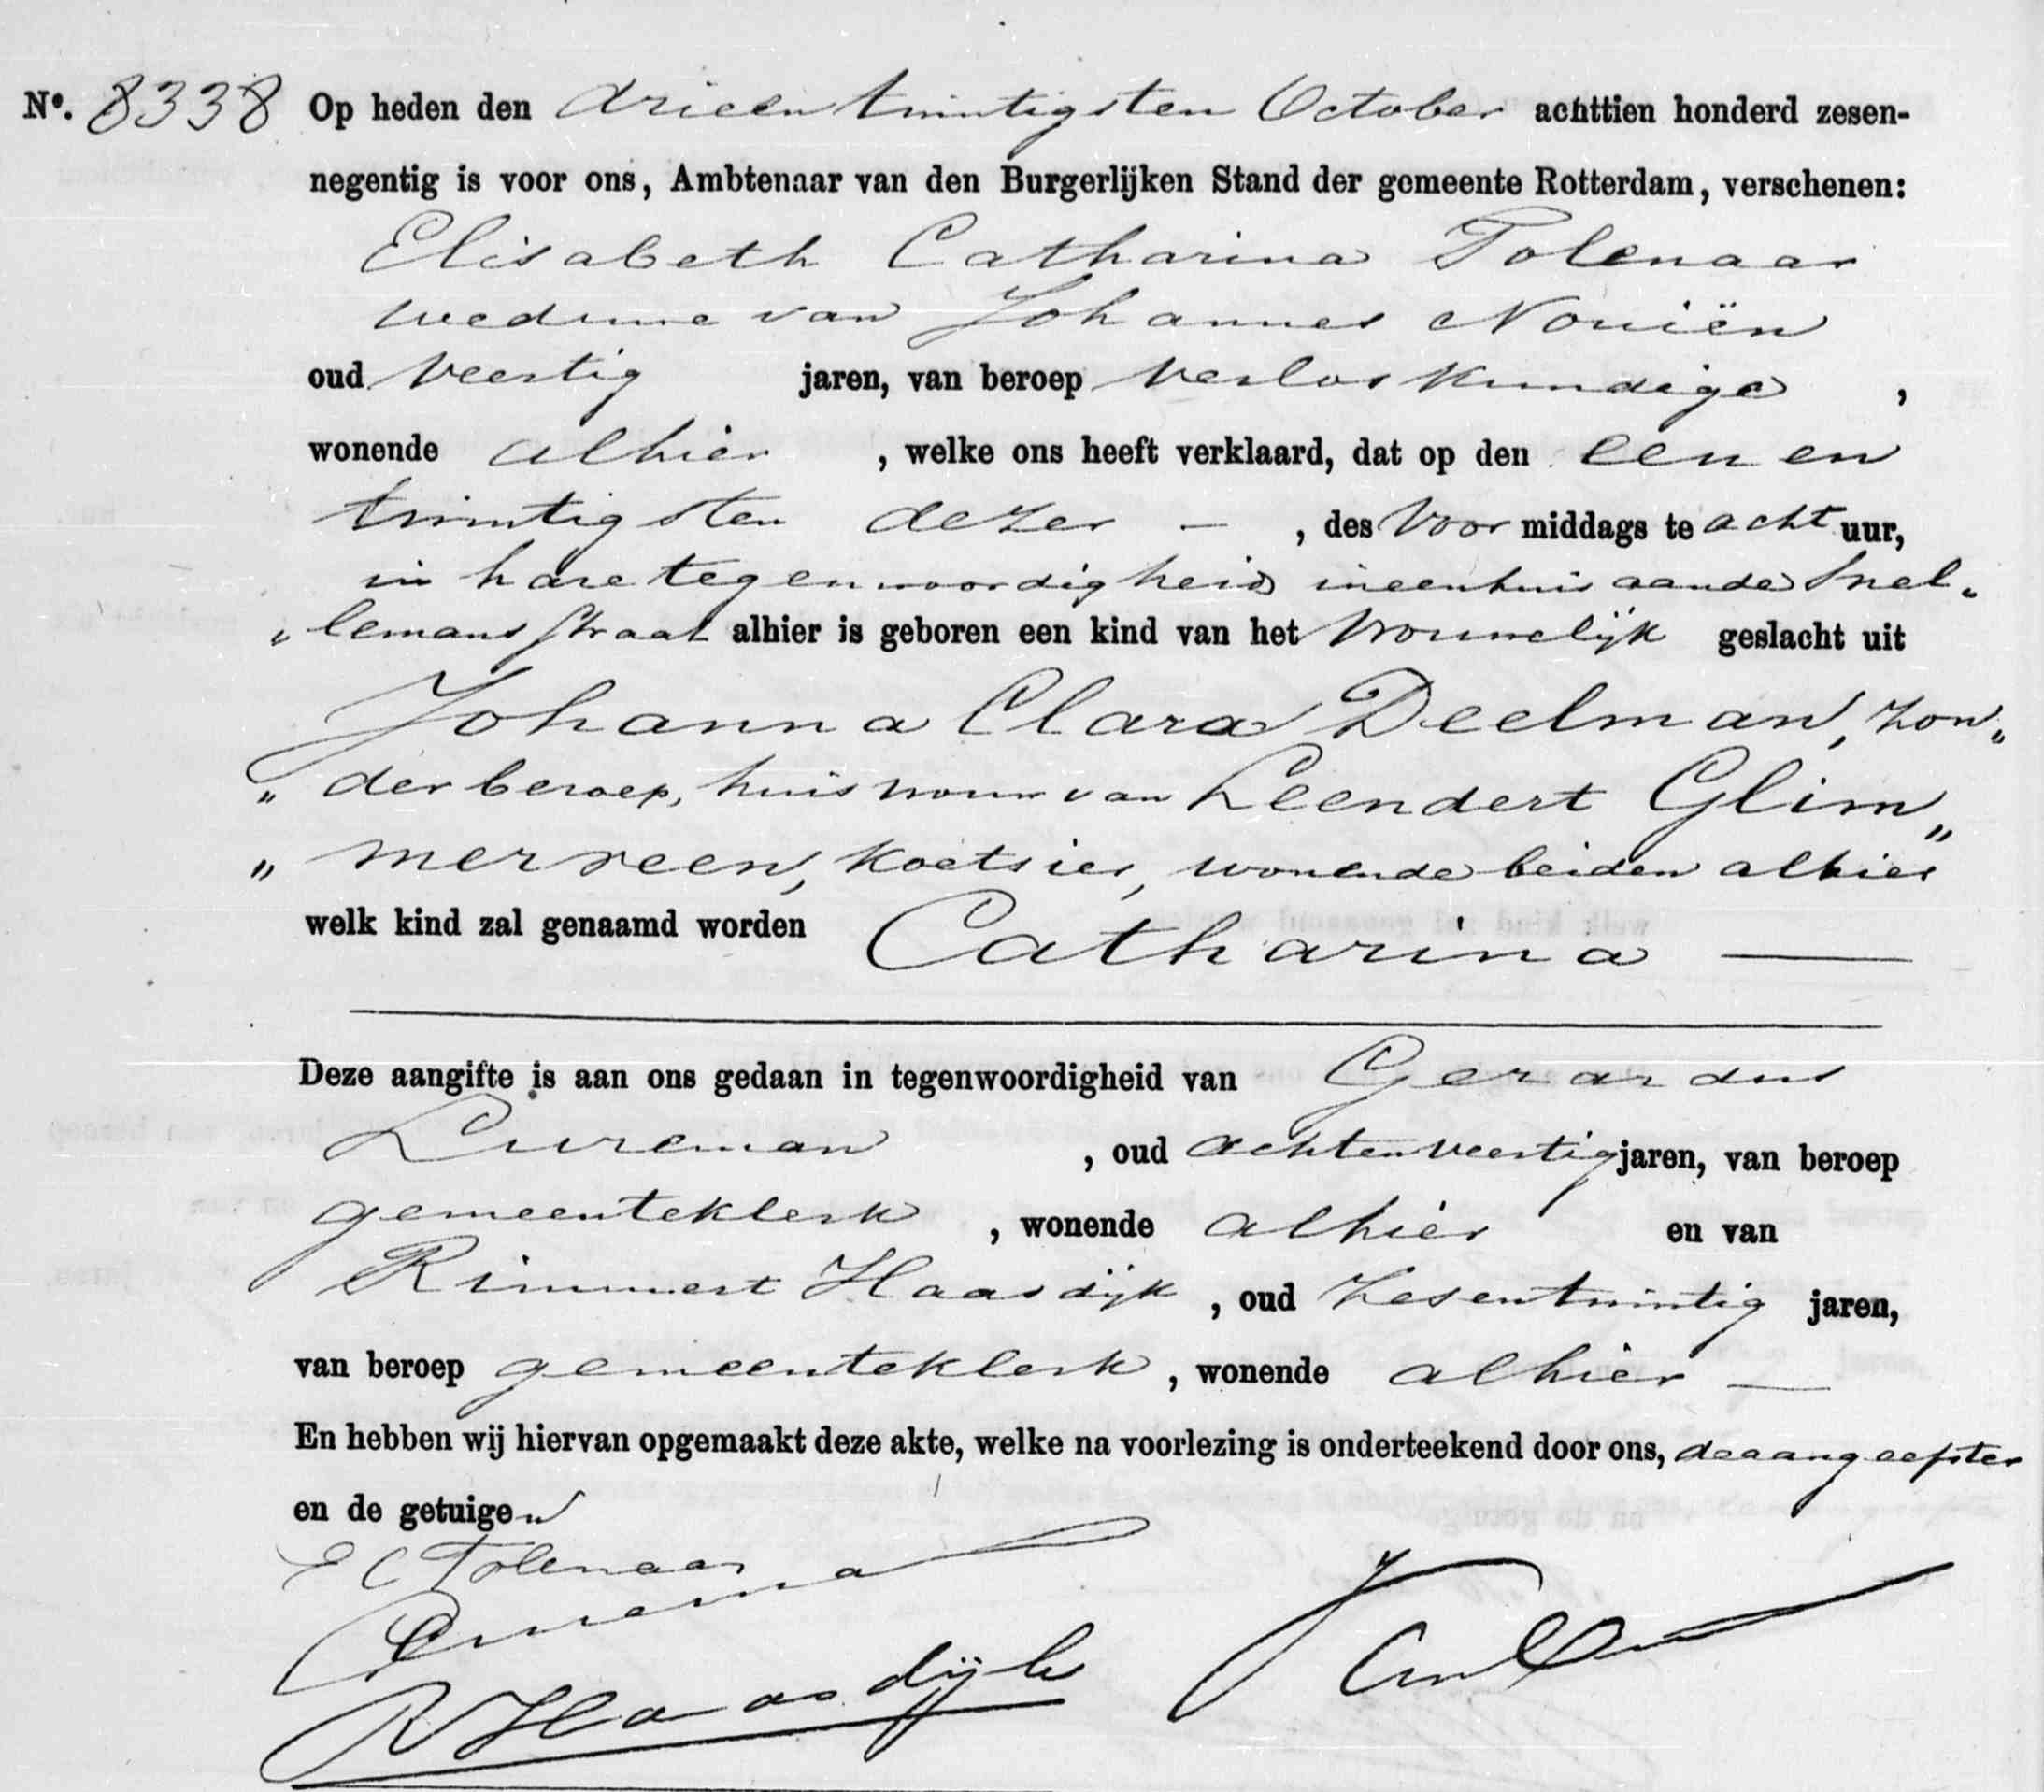 No. 8338 Op heden den drieentwintigsten October achttien honderd zesen-
negentig is voor ons, Ambtenaar van den Burgerlijken Stand der gemeente Rotterdam, verschenen:
Elisabeth Catharina Tolenaar
weduwe van Johannes Nouiën
oud veertig jaren, van beroep verloskundige,
wonende alhier, welke ons heeft verklaard, dat op den eenen
twintigsten dezer -, des voor middags te acht uur,
in hare tegenwoordigheid in een huis aan de Snel„
„lemanstraat alhier is geboren een kind van het vrouwelijk geslacht uit
Johanna Clara Deelman, zon„
„der beroep, huisvrouw van Leendert Glim„
„merveen, koetsier, wonende beiden alhier
welk kind zal genaamd worden Catharina —
Deze aangifte is aan ons gedaan in tegenwoordigheid van Gerardus
Cureman, oud achtenveertig jaren, van beroep
gemeenteklerk, wonende alhier en van
Rimmert Haasdijk, oud zesentwintig jaren,
van beroep gemeenteklerk, wonende alhier —
En hebben wij hiervan opgemaakt deze akte, welke na voorlezing is onderteekend door ons, de aangeefster
en de getuigen
E C Tolenaar
R Haasdijk